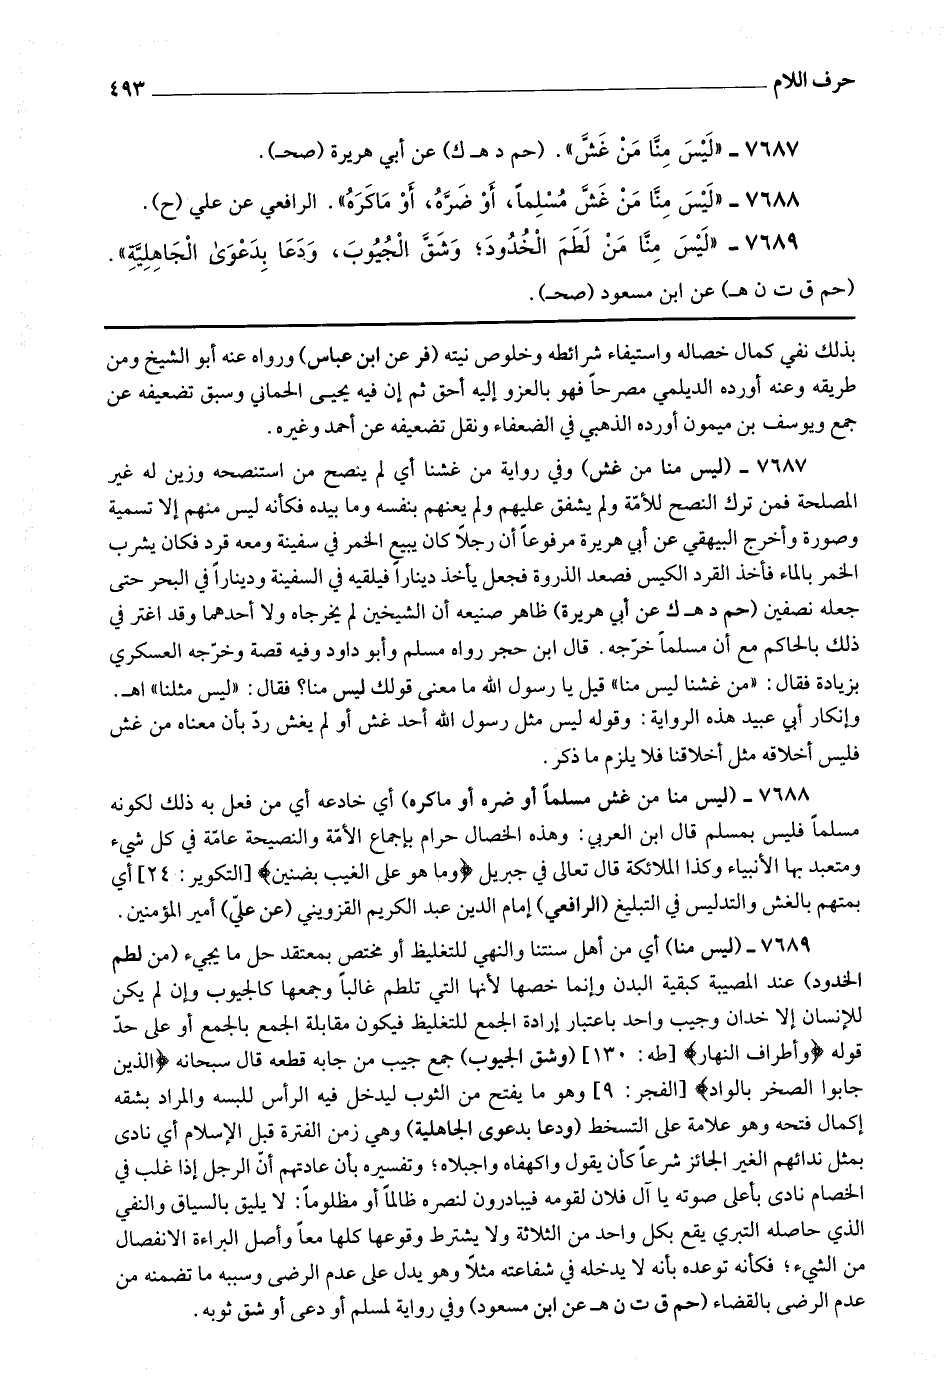 حرف اللام ٤٩٣
٧٦٨٧ ـ «لَيْسَ مِنَّا مَنْ غَشَّ». (حم د هـ ك) عن أبي هريرة (صحـ).
٧٦٨٨ ـ «لَيْسَ مِنَّا مَنْ غَشَّ مُسْلِماً، أَوْ ضَرَّهُ، أَوْ مَاكَرَهُ». الرافعي عن علي (ح).
٧٦٨٩ ـ «لَيْسَ مِنَّا مَنْ لَطَمَ الْخُدُودَ؛ وَشَقَّ الْجُيُوبَ، وَدَعَا بِدَعْوَىٰ الْجَاهِلِيَّةِ».
(حم ق ت ن هـ) عن ابن مسعود (صحـ).
بذلك نفي كمال خصاله واستيفاء شرائطه وخلوص نيته (فر عن ابن عباس) ورواه عنه أبو الشيخ ومن
طريقه وعنه أورده الديلمي مصرحاً فهو بالعزو إليه أحق ثم إن فيه يحيـى الحماني وسبق تضعيفه عن
جمع ويوسف بن ميمون أورده الذهبي في الضعفاء ونقل تضعيفه عن أحمد وغيره.
٧٦٨٧ ـ (ليس منا من غش) وفي رواية من غشنا أي لم ينصح من استنصحه وزين له غير
المصلحة فمن ترك النصح للأمّة ولم يشفق عليهم ولم يعنهم بنفسه وما بيده فكأنه ليس منهم إلا تسمية
وصورة وأخرج البيهقي عن أبي هريرة مرفوعاً أن رجلاً كان يبيع الخمر في سفينة ومعه قرد فكان يشرب
الخمر بالماء فأخذ القرد الكيس فصعد الذروة فجعل يأخذ ديناراً فيلقيه في السفينة وديناراً في البحر حتى
جعله نصفين (حم د هـ ك عن أبي هريرة) ظاهر صنيعه أن الشيخين لم يخرجاه ولا أحدهما وقد اغتر في
ذلك بالحاكم مع أن مسلماً خرّجه. قال ابن حجر رواه مسلم وأبو داود وفيه قصة وخرّجه العسكري
بزيادة فقال: «من غشنا ليس منا» قيل يا رسول الله ما معنى قولك ليس منا؟ فقال: «ليس مثلنا» اهـ.
وإنكار أبي عبيد هذه الرواية: وقوله ليس مثل رسول الله أحد غش أو لم يغش ردّ بأن معناه من غش
فليس أخلاقه مثل أخلاقنا فلا يلزم ما ذكر.
٧٦٨٨ ـ (ليس منا من غش مسلماً أو ضره أو ماكره) أي خادعه أي من فعل به ذلك لكونه
مسلماً فليس بمسلم قال ابن العربي: وهذه الخصال حرام بإجماع الأمّة والنصيحة عامّة في كل شيء
ومتعبد بها الأنبياء وكذا الملائكة قال تعالى في جبريل ﴿وما هو على الغيب بضنين﴾ [التكوير: ٢٤] أي
بمتهم بالغش والتدليس في التبليغ (الرافعي) إمام الدين عبد الكريم القزويني (عن عليّ) أمير المؤمنين.
٧٦٨٩ ـ (ليس منا) أي من أهل سنتنا والنهي للتغليظ أو مختص بمعتقد حل ما يجيء (من لطم
الخدود) عند المصيبة كبقية البدن وإنما خصها لأنها التي تلطم غالباً وجمعها كالجيوب وإن لم يكن
للإنسان إلا خدان وجيب واحد باعتبار إرادة الجمع للتغليظ فيكون مقابلة الجمع بالجمع أو على حدّ
قوله ﴿وأطراف النهار﴾ [طه: ١٣٠] (وشق الجيوب) جمع جيب من جابه قطعه قال سبحانه ﴿الذين
جابوا الصخر بالواد﴾ [الفجر: ٩] وهو ما يفتح من الثوب ليدخل فيه الرأس للبسه والمراد بشقه
إكمال فتحه وهو علامة على التسخط (ودعا بدعوى الجاهلية) وهي زمن الفترة قبل الإسلام أي نادى
بمثل ندائهم الغير الجائز شرعاً كأن يقول واكهفاه واجبلاه؛ وتفسيره بأن عادتهم أنّ الرجل إذا غلب في
الخصام نادى بأعلى صوته يا آل فلان لقومه فيبادرون لنصره ظالماً أو مظلوماً: لا يليق بالسياق والنفي
الذي حاصله التبري يقع بكل واحد من الثلاثة ولا يشترط وقوعها كلها معاً وأصل البراءة الانفصال
من الشيء؛ فكأنه توعده بأنه لا يدخله في شفاعته مثلاً وهو يدل على عدم الرضى وسببه ما تضمنه من
عدم الرضى بالقضاء (حم ق ت ن هـ عن ابن مسعود) وفي رواية لمسلم أو دعى أو شق ثوبه.